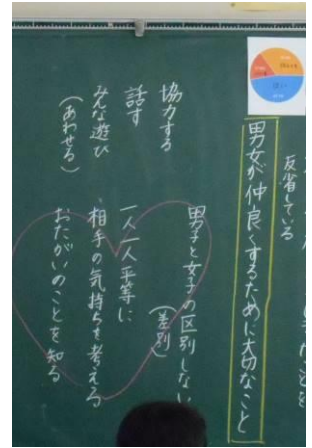 反省している
男女が仲良くするために大切なこと
男子と女子の区別しない
(差別)
一人一人平等に
相手の気持ちを考える
おたがいのことを知る
協力する
話す
みんな遊び
(あわせる)